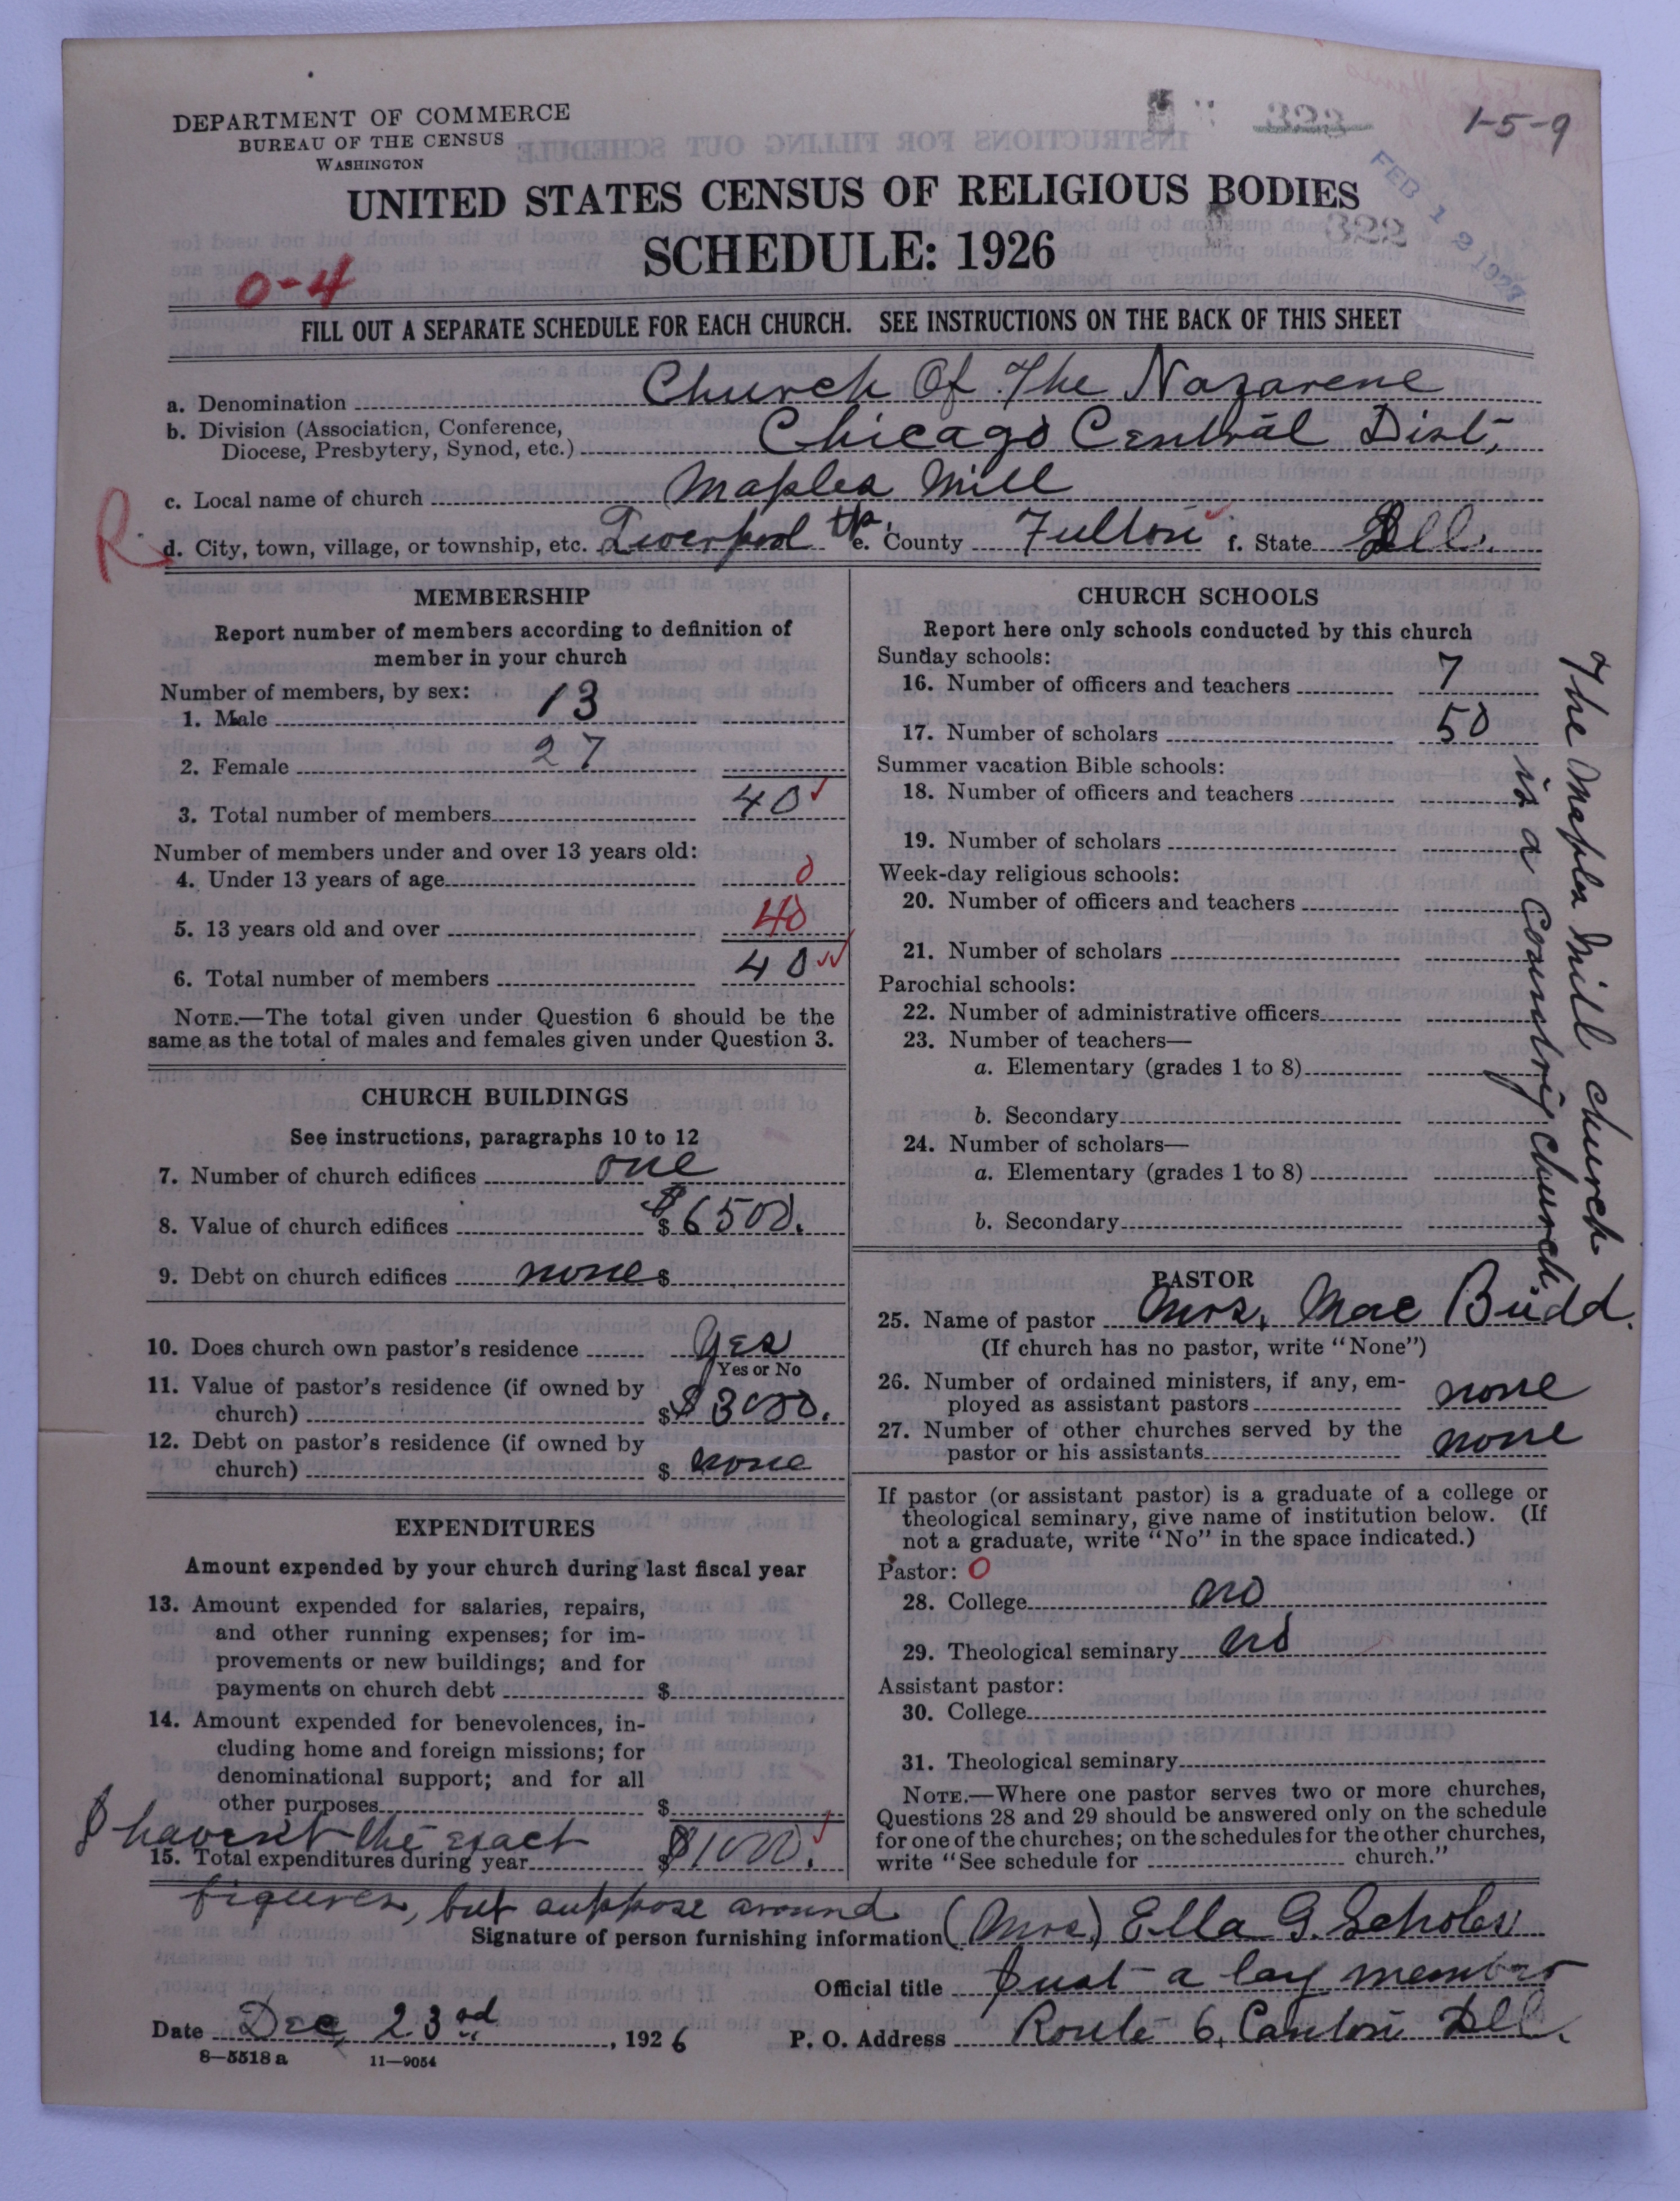 DEPARTMENT OF COMMERCE
BUREAU OF THE CENSUS
WASHINGTON
1-5-9
322
FEB 1 1927
UNITED STATES CENSUS OF RELIGIOUS BODIES
322
SCHEDULE: 1926
0-4
FILL OUT A SEPARATE SCHEDULE FOR EACH CHURCH. SEE INSTRUCTIONS ON THE BACK OF THIS SHEET
a. Denomination Church Of The Nazarene
b. Division (Association, Conference,
Diocese, Presbytery, Synod, etc.) Chicago Central Dist,
c. Local name of church Maples Mill
R
d. City, town, village, or township, etc. Liverpool tp. e. County Fulton f. State Ill.
MEMBERSHIP
Report number of members according to definition of
member in your church
Number of members, by sex:
1. Male 13
2. Female 27
3. Total number of members 40
Number of members under and over 13 years old:
4. Under 13 years of age 0
5. 13 years old and over 40
6. Total number of members 40
NOTE.—The total given under Question 6 should be the
same as the total of males and females given under Question 3.
CHURCH BUILDINGS
See instructions, paragraphs 10 to 12
7. Number of church edifices one
8. Value of church edifices $ $6500.
9. Debt on church edifices none $
10. Does church own pastor's residence Yes
Yes or No
11. Value of pastor's residence (if owned by
church) $ $3000.
12. Debt on pastor's residence (if owned by
church) $ none
EXPENDITURES
Amount expended by your church during last fiscal year
13. Amount expended for salaries, repairs,
and other running expenses; for im-
provements or new buildings; and for
payments on church debt $
14. Amount expended for benevolences, in-
cluding home and foreign missions; for
denominational support; and for all
other purposes $
I havent the exact
15. Total expenditures during year $ $1000.
figures, but suppose around
CHURCH SCHOOLS
Report here only schools conducted by this church
Sunday schools:
16. Number of officers and teachers 7
17. Number of scholars 50
Summer vacation Bible schools:
18. Number of officers and teachers
19. Number of scholars
Week-day religious schools:
20. Number of officers and teachers
21. Number of scholars
Parochial schools:
22. Number of administrative officers
23. Number of teachers—
a. Elementary (grades 1 to 8)
b. Secondary
24. Number of scholars—
a. Elementary (grades 1 to 8)
b. Secondary
The Maples Mill church
is a Country church.
PASTOR
25. Name of pastor Mrs. Mae Budd.
(If church has no pastor, write "None")
26. Number of ordained ministers, if any, em-
ployed as assistant pastors none
27. Number of other churches served by the
pastor or his assistants none
If pastor (or assistant pastor) is a graduate of a college or
theological seminary, give name of institution below. (If
not a graduate, write "No" in the space indicated.)
Pastor: 0
28. College no
29. Theological seminary no
Assistant pastor:
30. College
31. Theological seminary
NOTE.—Where one pastor serves two or more churches,
Questions 28 and 29 should be answered only on the schedule
for one of the churches; on the schedules for the other churches,
write "See schedule for church."
Signature of person furnishing information (Mrs.) Ella G. Scholes
Official title Just a lay member
Date Dec, 23rd, 1926 P. O. Address Route 6, Canton Ill.
8—5518 a 11—9054